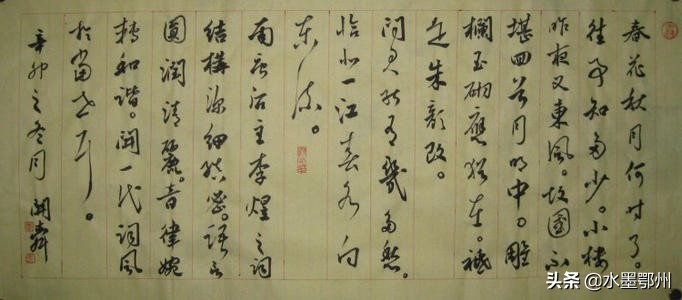 春花秋月何时了。
往事知多少。小楼
昨夜又東風。故國不
堪回首月明中。雕
欄玉砌應猶在。祗
是朱颜改。
问君能有幾多愁。
恰似一江春水向
东流。
南唐后主李煜之词
结構深细缜密。语言
圆润清麗。音律婉
转和谐。開一代词風
於當世
辛卯之冬月
头条 @水墨鄂州